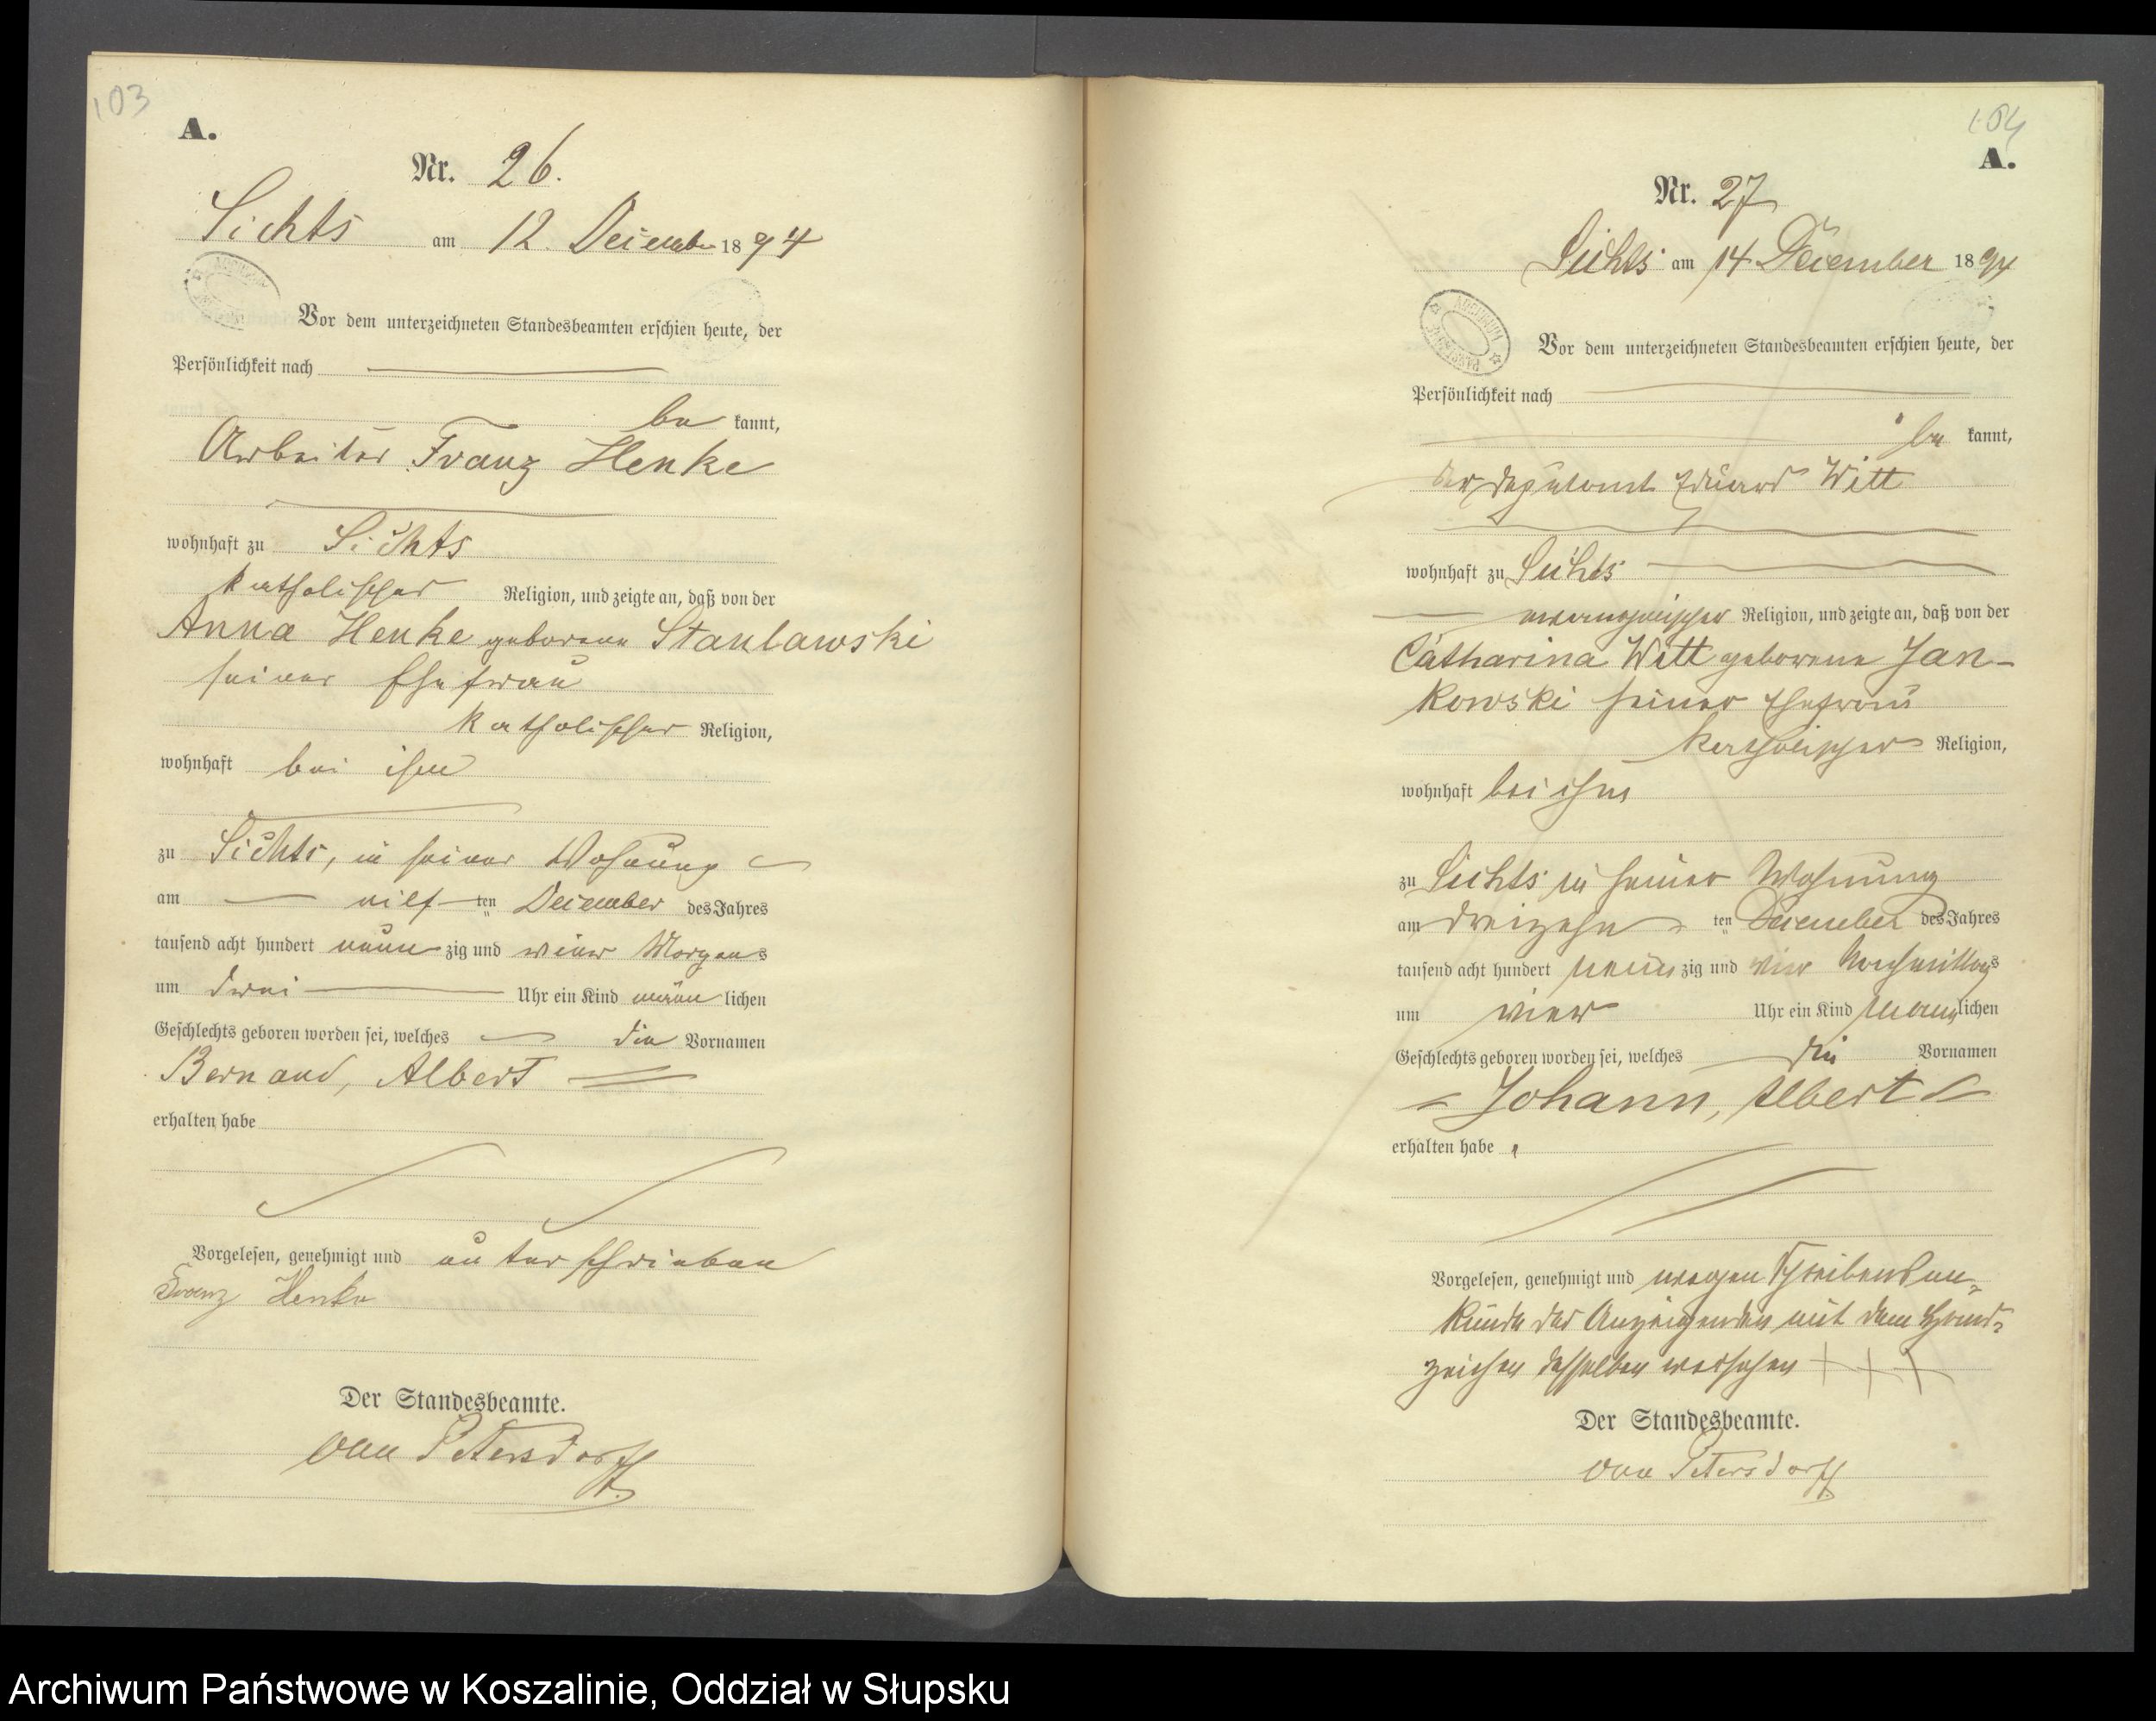 103
A.
Nr. 26.
Sichts am 12. December 1894
Vor dem unterzeichneten Standesbeamten erschien heute, der
Persönlichkeit nach
be kannt,
Arbeiter Franz Henke
wohnhaft zu Sichts
katholischer Religion, und zeigte an, daß von der
Anna Henke geborene Stanlawski
seiner Ehefrau
katholischer Religion,
wohnhaft bei ihm
zu Sichts, in seiner Wohnung
am eilf ten December des Jahres
tausend acht hundert neun zig und vier Morgens
um drei Uhr ein Kind männ lichen
Geschlechts geboren worden sei, welches die Vornamen
Bernard, Albert
erhalten habe
Vorgelesen, genehmigt und unterschrieben
Franz Henke
Der Standesbeamte.
von Petersdorff.
104
A.
Nr. 27
Sichts am 14 December 1894
ARCHIWUM PAŃSTWOWE
Vor dem unterzeichneten Standesbeamten erschien heute, der
Persönlichkeit nach
be kannt,
der Deputant Eduard Witt
wohnhaft zu Sichts
evangelischer Religion, und zeigte an, daß von der
Catharina Witt geborene Jan-
kowski seiner Ehefrau
katholischer Religion,
wohnhaft bei ihm
zu Sichts in seiner Wohnung
am dreizehn ten December des Jahres
tausend acht hundert neun zig und vier Nachmittags
um vier Uhr ein Kind männ lichen
Geschlechts geboren worden sei, welches die Vornamen
Johann, Albert
erhalten habe
Vorgelesen, genehmigt und wegen Schreibensun-
kunde des Anzeigenden mit dem Hand-
zeichen desselben versehen + + +
Der Standesbeamte.
von Petersdorff.
Archiwum Państwowe w Koszalinie, Oddział w Słupsku